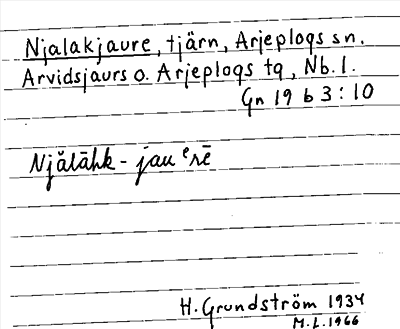 Njalakjaure, tjärn, Arjeplogs sn.
Arvidsjaurs o. Arjeplogs tg, Nb. l.
Gn 19 b 3:10
Njålåhk - jau ᵉrē
H. Grundström 1934
M.L. 1966